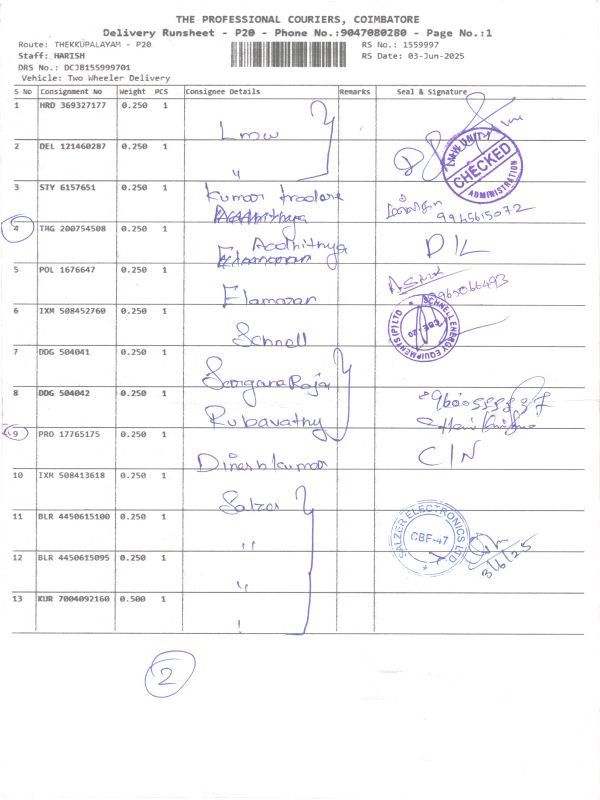 THE PROFESSIONAL COURIERS, COIMBATORE
Delivery Runsheet - P20 - Phone No.:9047080280 - Page No.:1
Route: THEKKUPALAYAM - P20
RS No.: 1559997
Staff: HARISH
RS Date: 03-Jun-2025
DRS No.: DCJB155999701
Vehicle: Two Wheeler Delivery
S No Consignment No Weight PCS Consignee Details Remarks Seal & Signature
1 HRD 369327177 0.250 1 Lmw
2 DEL 121460287 0.250 1 "
LMW UNITY CHECKED ADMINISTRATION
3 STY 6157651 0.250 1 Kumar traders
9945615072
4 THG 200754508 0.250 1 Aadhithya D/L
5 POL 1676647 0.250 1 Elamaran
6 IXM 508452760 0.250 1 Schnell
SCHNELL ENERGY EQUIPMENTS (P) LTD CBE-20
7 DDG 504041 0.250 1
8 DDG 504042 0.250 1 Rubavathy
9 PRO 17765175 0.250 1 Dineshkumar C/N
10 IXM 508413618 0.250 1 Salzer
11 BLR 4450615100 0.250 1 "
SALZER ELECTRONICS LTD CBF-47
3/6/25
12 BLR 4450615095 0.250 1 "
13 KUR 7004092160 0.500 1
2